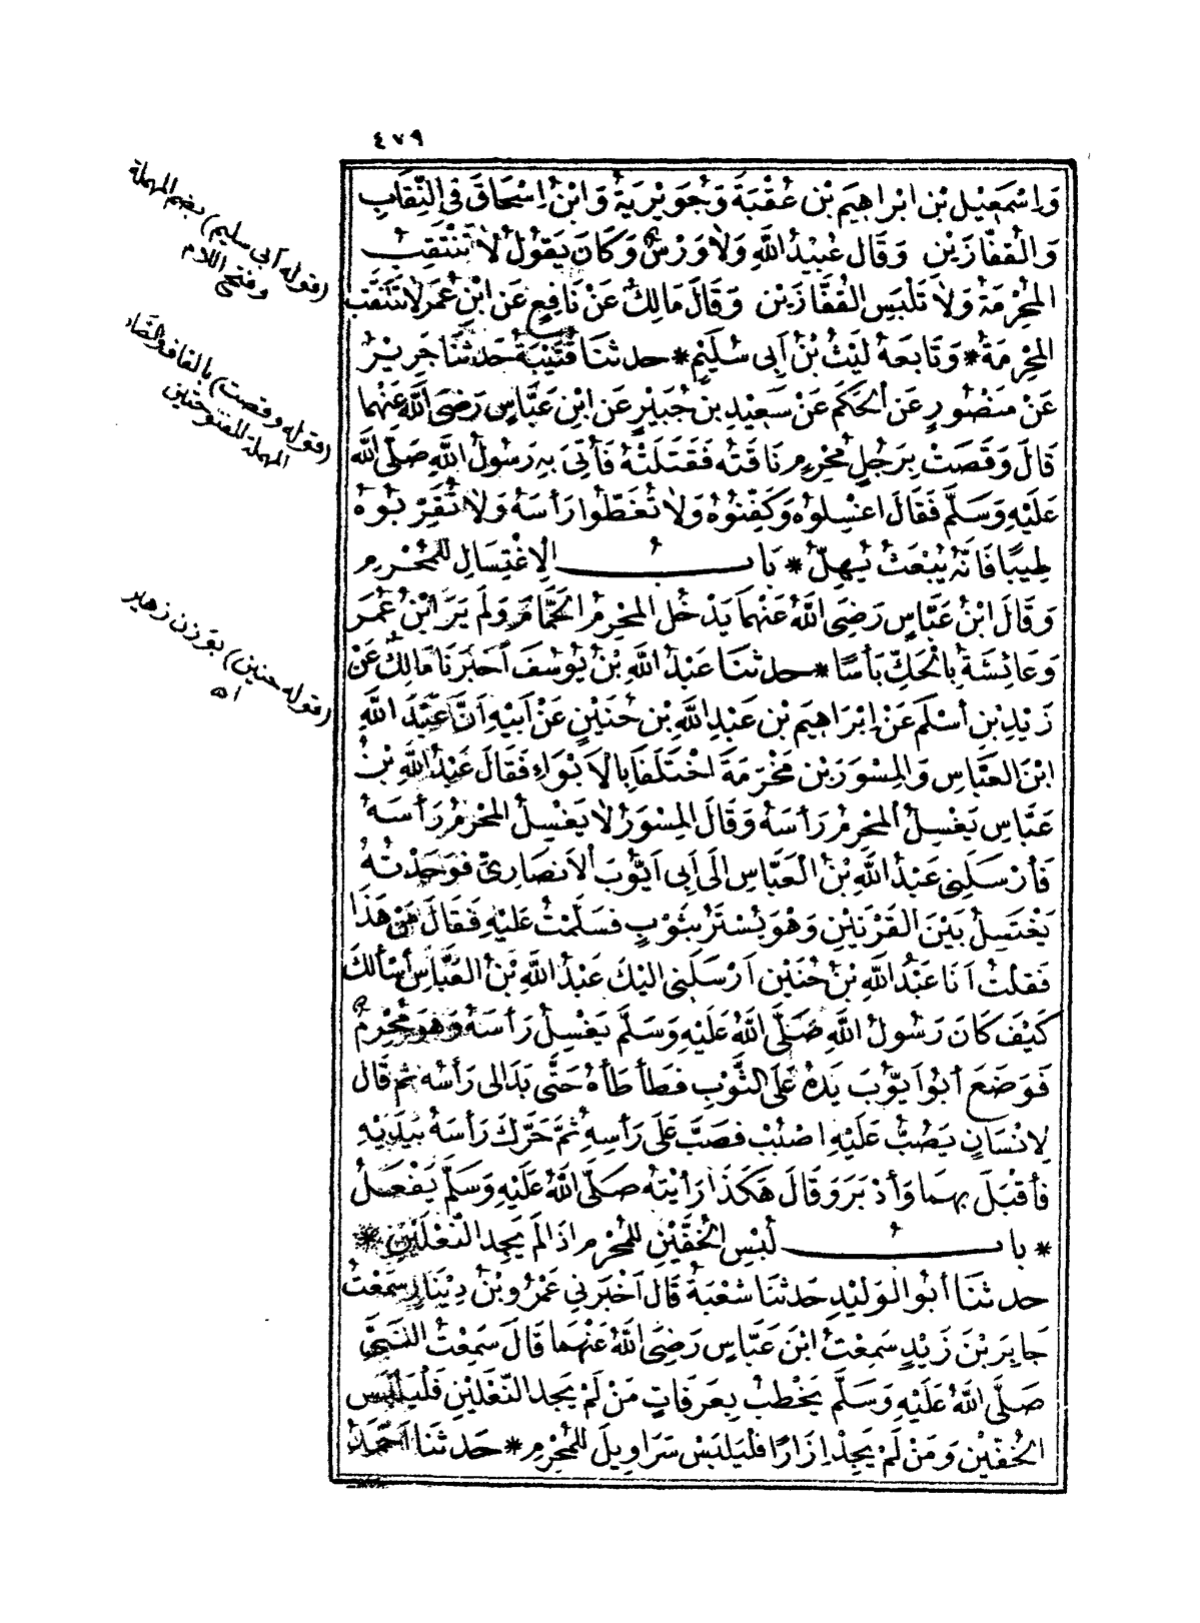 ٤٧٩
وَاِسْمَعِيْلُ بْنِ ابْرَاهِيمَ بْنِ عُقْبَةَ وَجُوَيْرِيَةُ وَابْنُ اِسْحَاقَ فِى النِّقَابِ
وَالْقُفَّازَيْنِ وَقَالَ عُبَيْدُ اللَّهِ وَلَا وَرْسٌ وَكَانَ يَقُوْلُ لَا تَنْتَقِبُ
المُحْرِمَةُ وَلَا تَلْبَسِ القُفَّازَيْنِ وَقَالَ مَالِكٌ عَنْ نَافِعٍ عَنِ ابْنِ عُمَرَ لَا تَنْتَقِبِ
المُحْرِمَةُ * وَتَابَعَهُ لَيْثُ بْنُ اَبِى سُلَيْمٍ * حدثنَا قُتَيْبَةُ حَدثنَا جَرِيرٌ
عَنْ مَنْصُورٍ عَنِ الحَكَمِ عَنْ سَعِيْدِ بنِ جُبَيْرٍ عَنِ ابْنِ عَبَّاسٍ رَضِىَ اللَّهُ عَنْهُمَا
قَالَ وَقَصَتْ بِرَجُلٍ مُحْرِمٍ نَاقَتُه فَقَتَلَتْهُ فَأُتِىَ بِهِ رَسُوْلُ اللَّهِ صَلَّى اللَّه
عَلَيْهِ وَسَلَّمَ فَقَالَ اغْسِلُوْه وَكَفِّنُوْهُ وَلَا تُغَطُّوا رَأْسَهُ وَلَا تُقَرِّبُوْهُ
طِيبًا فَاِنَّهُ يُبْعَثُ يُهِلُّ * بَابُ الِاغْتِسَالِ لِلمُحْرِمِ
وَقَالَ ابْنُ عَبَّاسٍ رَضِىَ اللَّهُ عَنْهُمَا يَدْخُلُ المُحْرِمُ الحَمَّامَ وَلَمْ يَرَ ابْنُ عُمَرَ
وَعَائِشَةُ بِالْحَكِّ بَأْسًا * حدثنَا عَبْدُ اللَّهِ بْنُ يُوسُفَ أَخبَرَنَا مَالِكٌ عَنْ
زَيْدِ بْنِ أسْلَمَ عَنْ اِبْرَاهِيمَ بْنِ عَبْدِ اللَّهِ بْنِ حُنَيْنٍ عَنْ أَبِيْهِ اَنَّ عَبْدَ اللَّهِ
ابْنَ العَبَّاسِ وَالمِسْوَرَ بْنَ مَخْرَمَةَ اخْتَلَفَا بِالاَبْوَاءِ فَقَالَ عَبْدُ اللَّهِ بْنُ
عَبَّاسٍ يَغْسِلُ المُحْرِمُ رَأسَهُ وَقَالَ المِسْوَرُ لَا يَغْسِلُ المُحْرِمُ رَأسَهُ
فَأرْسَلَنِى عَبْدُ اللَّهِ بْنُ الْعَبَّاسِ اِلَى اَبِى اَيُّوْبَ الاَنْصَارِىِّ فَوَجَدْتُهُ
يَغْتَسِلُ بَيْنَ القَرْنَيْنِ وَهْوَ يُسْتَرُ بِثَوْبٍ فَسَلَّمْتُ عَلَيْهِ فَقَالَ مَنْ هَذَا
فَقلْتُ اَنَا عَبْدُ اللَّهِ بْنُ حُنَيْنٍ اَرْسَلَنِى اِلَيْكَ عَبْدُ اللَّهِ بْنُ العَبَّاسِ أَسْأَلُكَ
كَيْفَ كَانَ رَسُولُ اللَّهِ صَلَّى اللَّهُ عَلَيْهِ وَسَلَّمَ يَغْسِلُ رَأْسَهُ وَهَوَ مُحْرِمٌ
فَوَضَعَ أَبُوْ اَيُّوْبَ يَدَهُ عَلَى الثَّوْبِ فَطَأطَأهُ حَتَّى بَدَا لِى رَأْسُه ثمَّ قَالَ
لِاِنْسَانٍ يَصُبُّ عَلَيْهِ اصْبُبْ فَصَبَّ عَلَى رَأْسِهِ ثُمَّ حَرَّكَ رَأسَهُ بِيَدَيْهِ
فأقْبَلَ بِهِمَا وَأَدْبَرَ وَقَالَ هَكَذَا رَأيْتُه صَلَّى اللَّهُ عَلَيْهِ وَسَلَّمَ يَفْعَلُ
* بَابُ لُبْسِ الخُفَّيْنِ لِلمُحْرِمِ اذَا لَم يَجِدِ النَّعْلَيْنِ *
حدثنَا أبُو الوَلِيْدِ حَدثنَا شعْبَةُ قَالَ أَخْبَرَنِي عَمْرُو بْنُ دِيْنَارٍ سَمِعْتُ
جَابِرَ بْنَ زَيْدٍ سَمِعْتُ ابْنَ عَبَّاسٍ رَضِىَ اللَّهُ عَنْهُمَا قَالَ سَمِعْتُ النَّبِىَّ
صَلَّى اللَّهُ عَلَيْهِ وَسَلَّمَ يَخْطُبُ بِعَرَفَاتٍ مَنْ لَمْ يَجِدِ النَّعْلَيْنِ فَلْيَلْبَسِ
الخُفَّيْنِ وَمَنْ لَمْ يَجِدْ اِزَارًا فَلْيَلبَسْ سَرَاوِيلَ لِلمُحْرِمِ * حَدثنَا اَحْمَدُ
(قوله أبى سليم) بضم المهملة
وفتح اللام
(قوله وقصت) بالقاف والصاد
المهملة المفتوحتين
(قوله حنين) بوزن زهير
اه